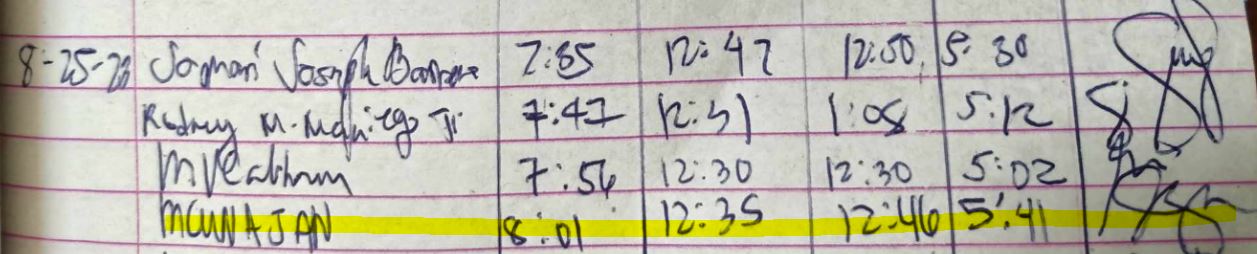 8-25-23 Jomari Joseph 7:35 12:47 12:50 5:30
Rodney M. Jr. 7:47 12:31 1:08 5:12
7:54 12:30 12:30 5:02
MCUNAJAN 8:01 12:35 12:46 5:41